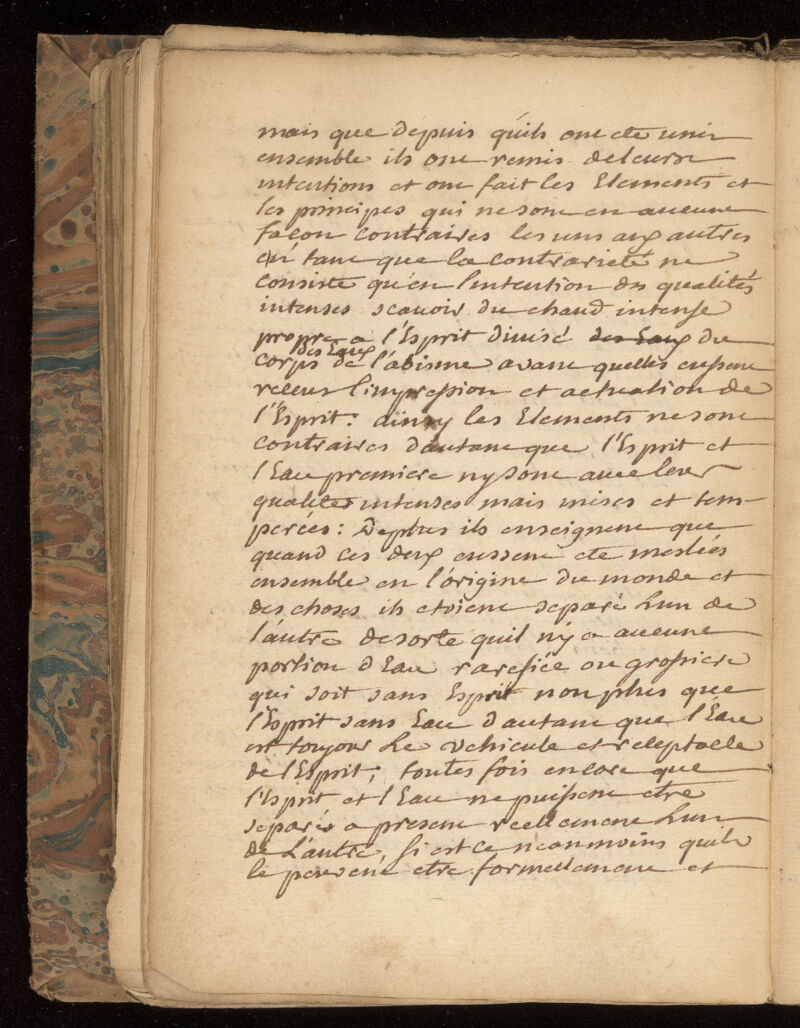 mais que depuis quils ont ete unir
ensemble ils ont remis de leurs
intentions et ont fait les Elements et
les principes qui ne sont en aucune
façon contraires les uns aux autres
en tant que la contrarieté ne
consiste qu'en l'intention des qualités
intenses scavoir du chaud intense
propre a l'Esprit divisé des Eaux du
corps des Eaux de l'abisme avant quelles eussent
receus l'impression et actuation de
l'Esprit: ainsy les Elements ne sont
contraires d'autant que l'Esprit et
l'Eau premiere ny sont avec leur
qualites intenses mais mises et tem-
perées: Deplus ils enseignent que
quand ces deux eussent ete meslées
ensemble en l'origine du monde et
des choses ils etoient separé Lun de
l'autre de sorte quil n'y a aucune
portion d'Eau rarefiée ou grossiere
qui soit sans Esprit non plus que
l'Esprit sans Eau d'autant que l'Eau
est toujour Le vehicule et releptacle
de l'Esprit; toutes fois encore que
l'Esprit et l'Eau ne puissent etre
separés a present reellement Lun
de L'autre, si est ce neanmoins quils
le peuvent etre formellement et